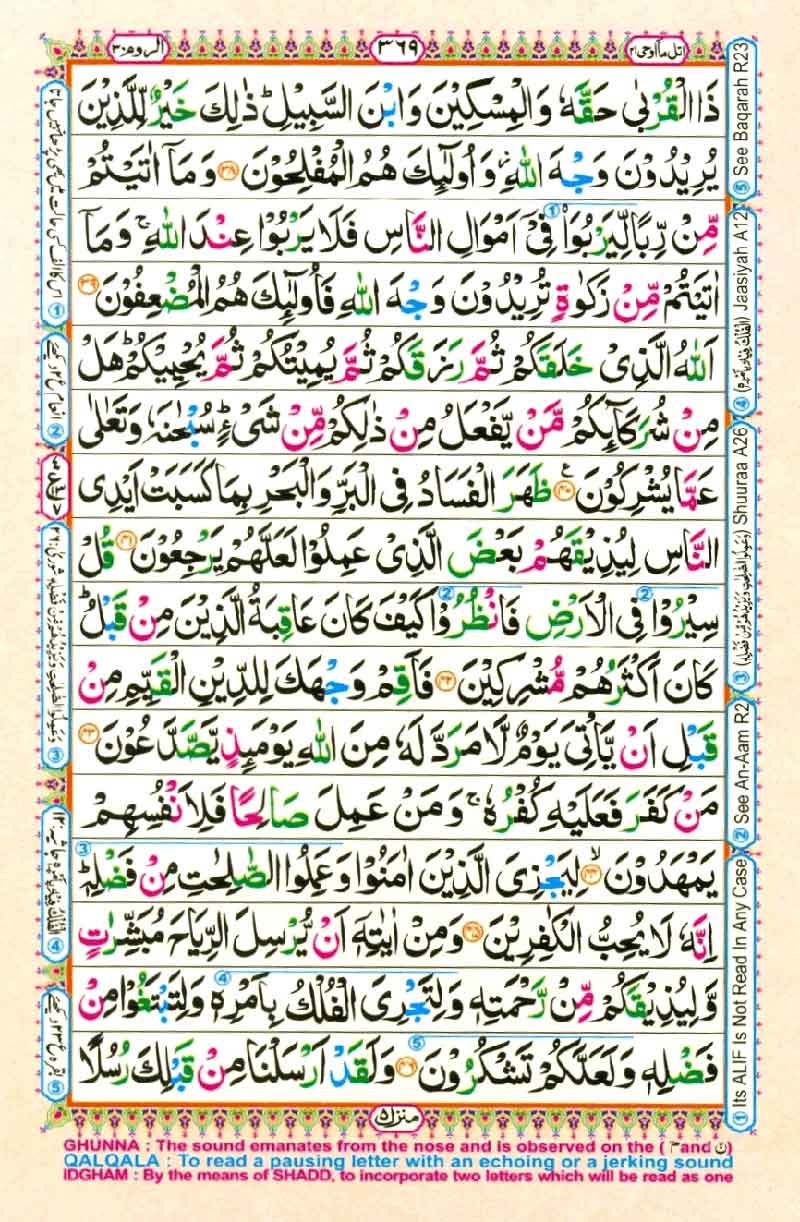 اتل ما اوحی ۲۱
۳۶۹
الروم ۳۰
ذَا الْقُرْبٰى حَقَّهٗ وَالْمِسْكِيْنَ وَابْنَ السَّبِيْلِ ؕ ذٰلِكَ خَيْرٌ لِّلَّذِيْنَ
يُرِيْدُوْنَ وَجْهَ اللّٰهِ ز وَاُولٰٓئِكَ هُمُ الْمُفْلِحُوْنَ ۳۸ وَمَاۤ اٰتَيْتُمْ
مِّنْ رِّبًا لِّيَرْبُوَا۟ ① فِيْۤ اَمْوَالِ النَّاسِ فَلَا يَرْبُوْا عِنْدَ اللّٰهِ ۚ وَمَاۤ
اٰتَيْتُمْ مِّنْ زَكٰوةٍ تُرِيْدُوْنَ وَجْهَ اللّٰهِ فَاُولٰٓئِكَ هُمُ الْمُضْعِفُوْنَ ۳۹
اَللّٰهُ الَّذِيْ خَلَقَكُمْ ثُمَّ رَزَقَكُمْ ثُمَّ يُمِيْتُكُمْ ثُمَّ يُحْيِيْكُمْ ؕ هَلْ
مِنْ شُرَكَآئِكُمْ مَّنْ يَّفْعَلُ مِنْ ذٰلِكُمْ مِّنْ شَيْءٍ ؕ سُبْحٰنَهٗ وَتَعٰلٰى
عَمَّا يُشْرِكُوْنَ ۴۰ ع ظَهَرَ الْفَسَادُ فِي الْبَرِّ وَالْبَحْرِ بِمَا كَسَبَتْ اَيْدِي
النَّاسِ لِيُذِيْقَهُمْ بَعْضَ الَّذِيْ عَمِلُوْا لَعَلَّهُمْ يَرْجِعُوْنَ ۴۱ قُلْ
سِيْرُوْا ② فِي الْاَرْضِ فَانْظُرُوْا ② كَيْفَ كَانَ عَاقِبَةُ الَّذِيْنَ مِنْ قَبْلُ ؕ
كَانَ اَكْثَرُهُمْ مُّشْرِكِيْنَ ۴۲ فَاَقِمْ وَجْهَكَ لِلدِّيْنِ الْقَيِّمِ مِنْ
قَبْلِ اَنْ يَّاْتِيَ يَوْمٌ لَّا مَرَدَّ لَهٗ مِنَ اللّٰهِ يَوْمَئِذٍ يَّصَّدَّعُوْنَ ۴۳
مَنْ كَفَرَ فَعَلَيْهِ كُفْرُهٗ ۚ وَمَنْ عَمِلَ صَالِحًا فَلِاَنْفُسِهِمْ
يَمْهَدُوْنَ ۙ ۴۴ لِيَجْزِيَ الَّذِيْنَ اٰمَنُوْا وَعَمِلُوا الصّٰلِحٰتِ مِنْ فَضْلِهٖ ؕ ③
اِنَّهٗ لَا يُحِبُّ الْكٰفِرِيْنَ ۴۵ وَمِنْ اٰيٰتِهٖۤ اَنْ يُّرْسِلَ الرِّيَاحَ مُبَشِّرٰتٍ
وَّلِيُذِيْقَكُمْ مِّنْ رَّحْمَتِهٖ وَلِتَجْرِيَ الْفُلْكُ بِاَمْرِهٖ ④ وَلِتَبْتَغُوْا مِنْ
فَضْلِهٖ وَلَعَلَّكُمْ تَشْكُرُوْنَ ⑤ ۴۶ وَلَقَدْ اَرْسَلْنَا مِنْ قَبْلِكَ رُسُلًا
منزل ۵
① Its ALIF Is Not Read In Any Case
② See An-Aam R2
③ Shuuraa A26
④ Jaasiyah A12
⑤ See Baqarah R23
GHUNNA : The sound emanates from the nose and is observed on the ( م and ن)
QALQALA : To read a pausing letter with an echoing or a jerking sound
IDGHAM : By the means of SHADD, to incorporate two letters which will be read as one